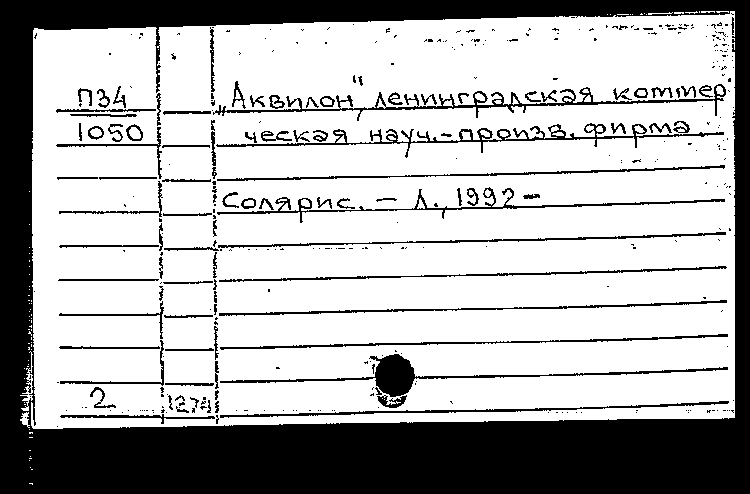 П34
1050
„Аквилон", ленинградская коммер
ческая науч.-произв. фирма.
Солярис. – Л., 1992–
2